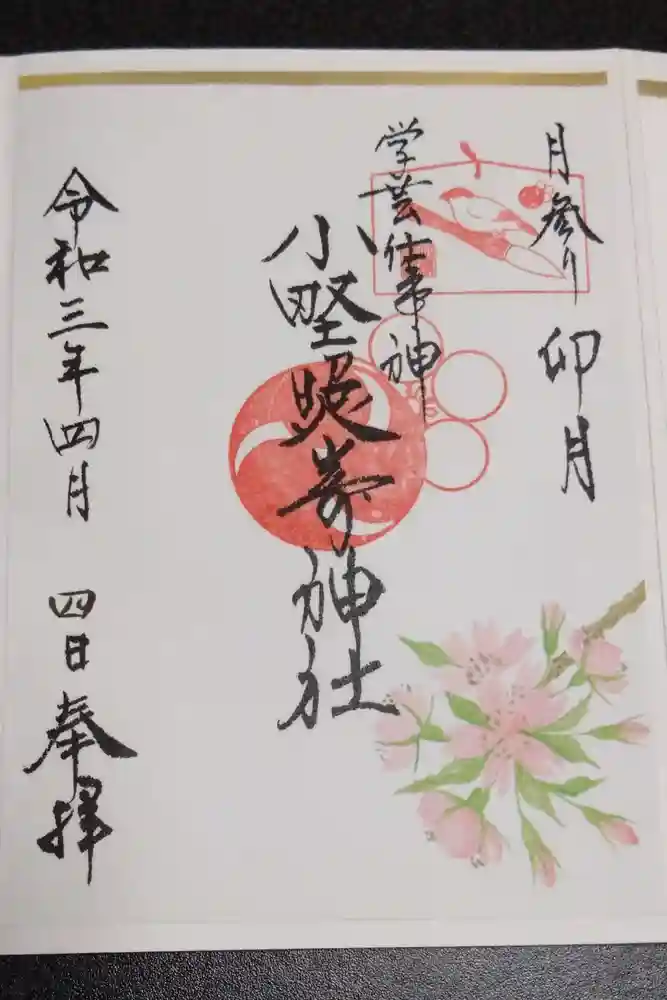 月参り 卯月
学芸仕事神
小野照崎神社
令和三年四月 四日奉拝